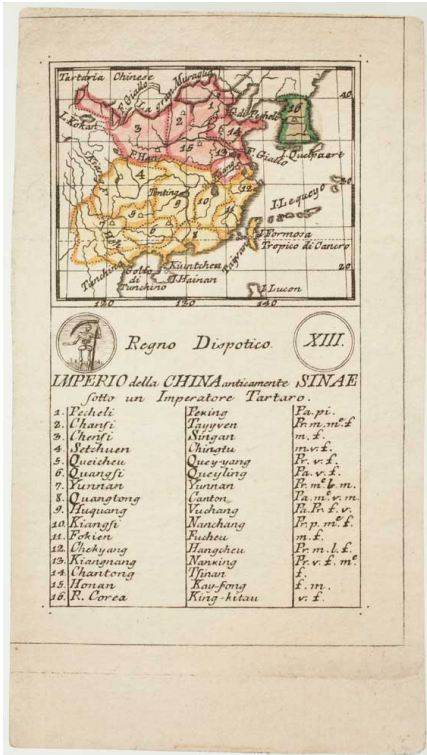 Tartaria Chinese
F. Giallo
La gran Muraglia
G. di Pecheli
16
40
1
2
14
3
15
13
I. Kokan
F. Hoan
F. Giallo
I. Quelpaert
4
12
30
5
9
10
11
I. Lequeyo
7
6
8
I. Formosa
Tropico di Cancro
Tunchino
Golfo
di
Tunchino
I. Hainan
20
I. Lucon
120
130
140
Regno Dispotico.
XIII.
IMPERIO della CHINA anticamente SINAE
sotto un Imperatore Tartaro.
1. Pecheli Peking Pa. pi.
2. Chansi Tayyven Pr. m. mᵉ. f
3. Chensi Singan m. f.
4. Setchuen Chingtu m. v. f.
5. Queicheu Quey-yang Pr. v. f.
6. Quangsi Queyling Pa. v. f.
7. Yunnan Yunnan Pr. mᵉ. b. m.
8. Quangtong Canton Pa. mᵉ. v. m.
9. Huquang Vuchang Pa. Pr. f. v.
10. Kiangsi Nanchang Pr. p. mᵉ. f.
11. Fokien Fucheu m. f.
12. Chekyang Hangcheu Pr. m. l. f.
13. Kiangnang Nanking Pr. v. f. mᵉ.
14. Chantong Tsinan f.
15. Honan Kay-fong f. m.
16. R. Corea King-kitau v. f.